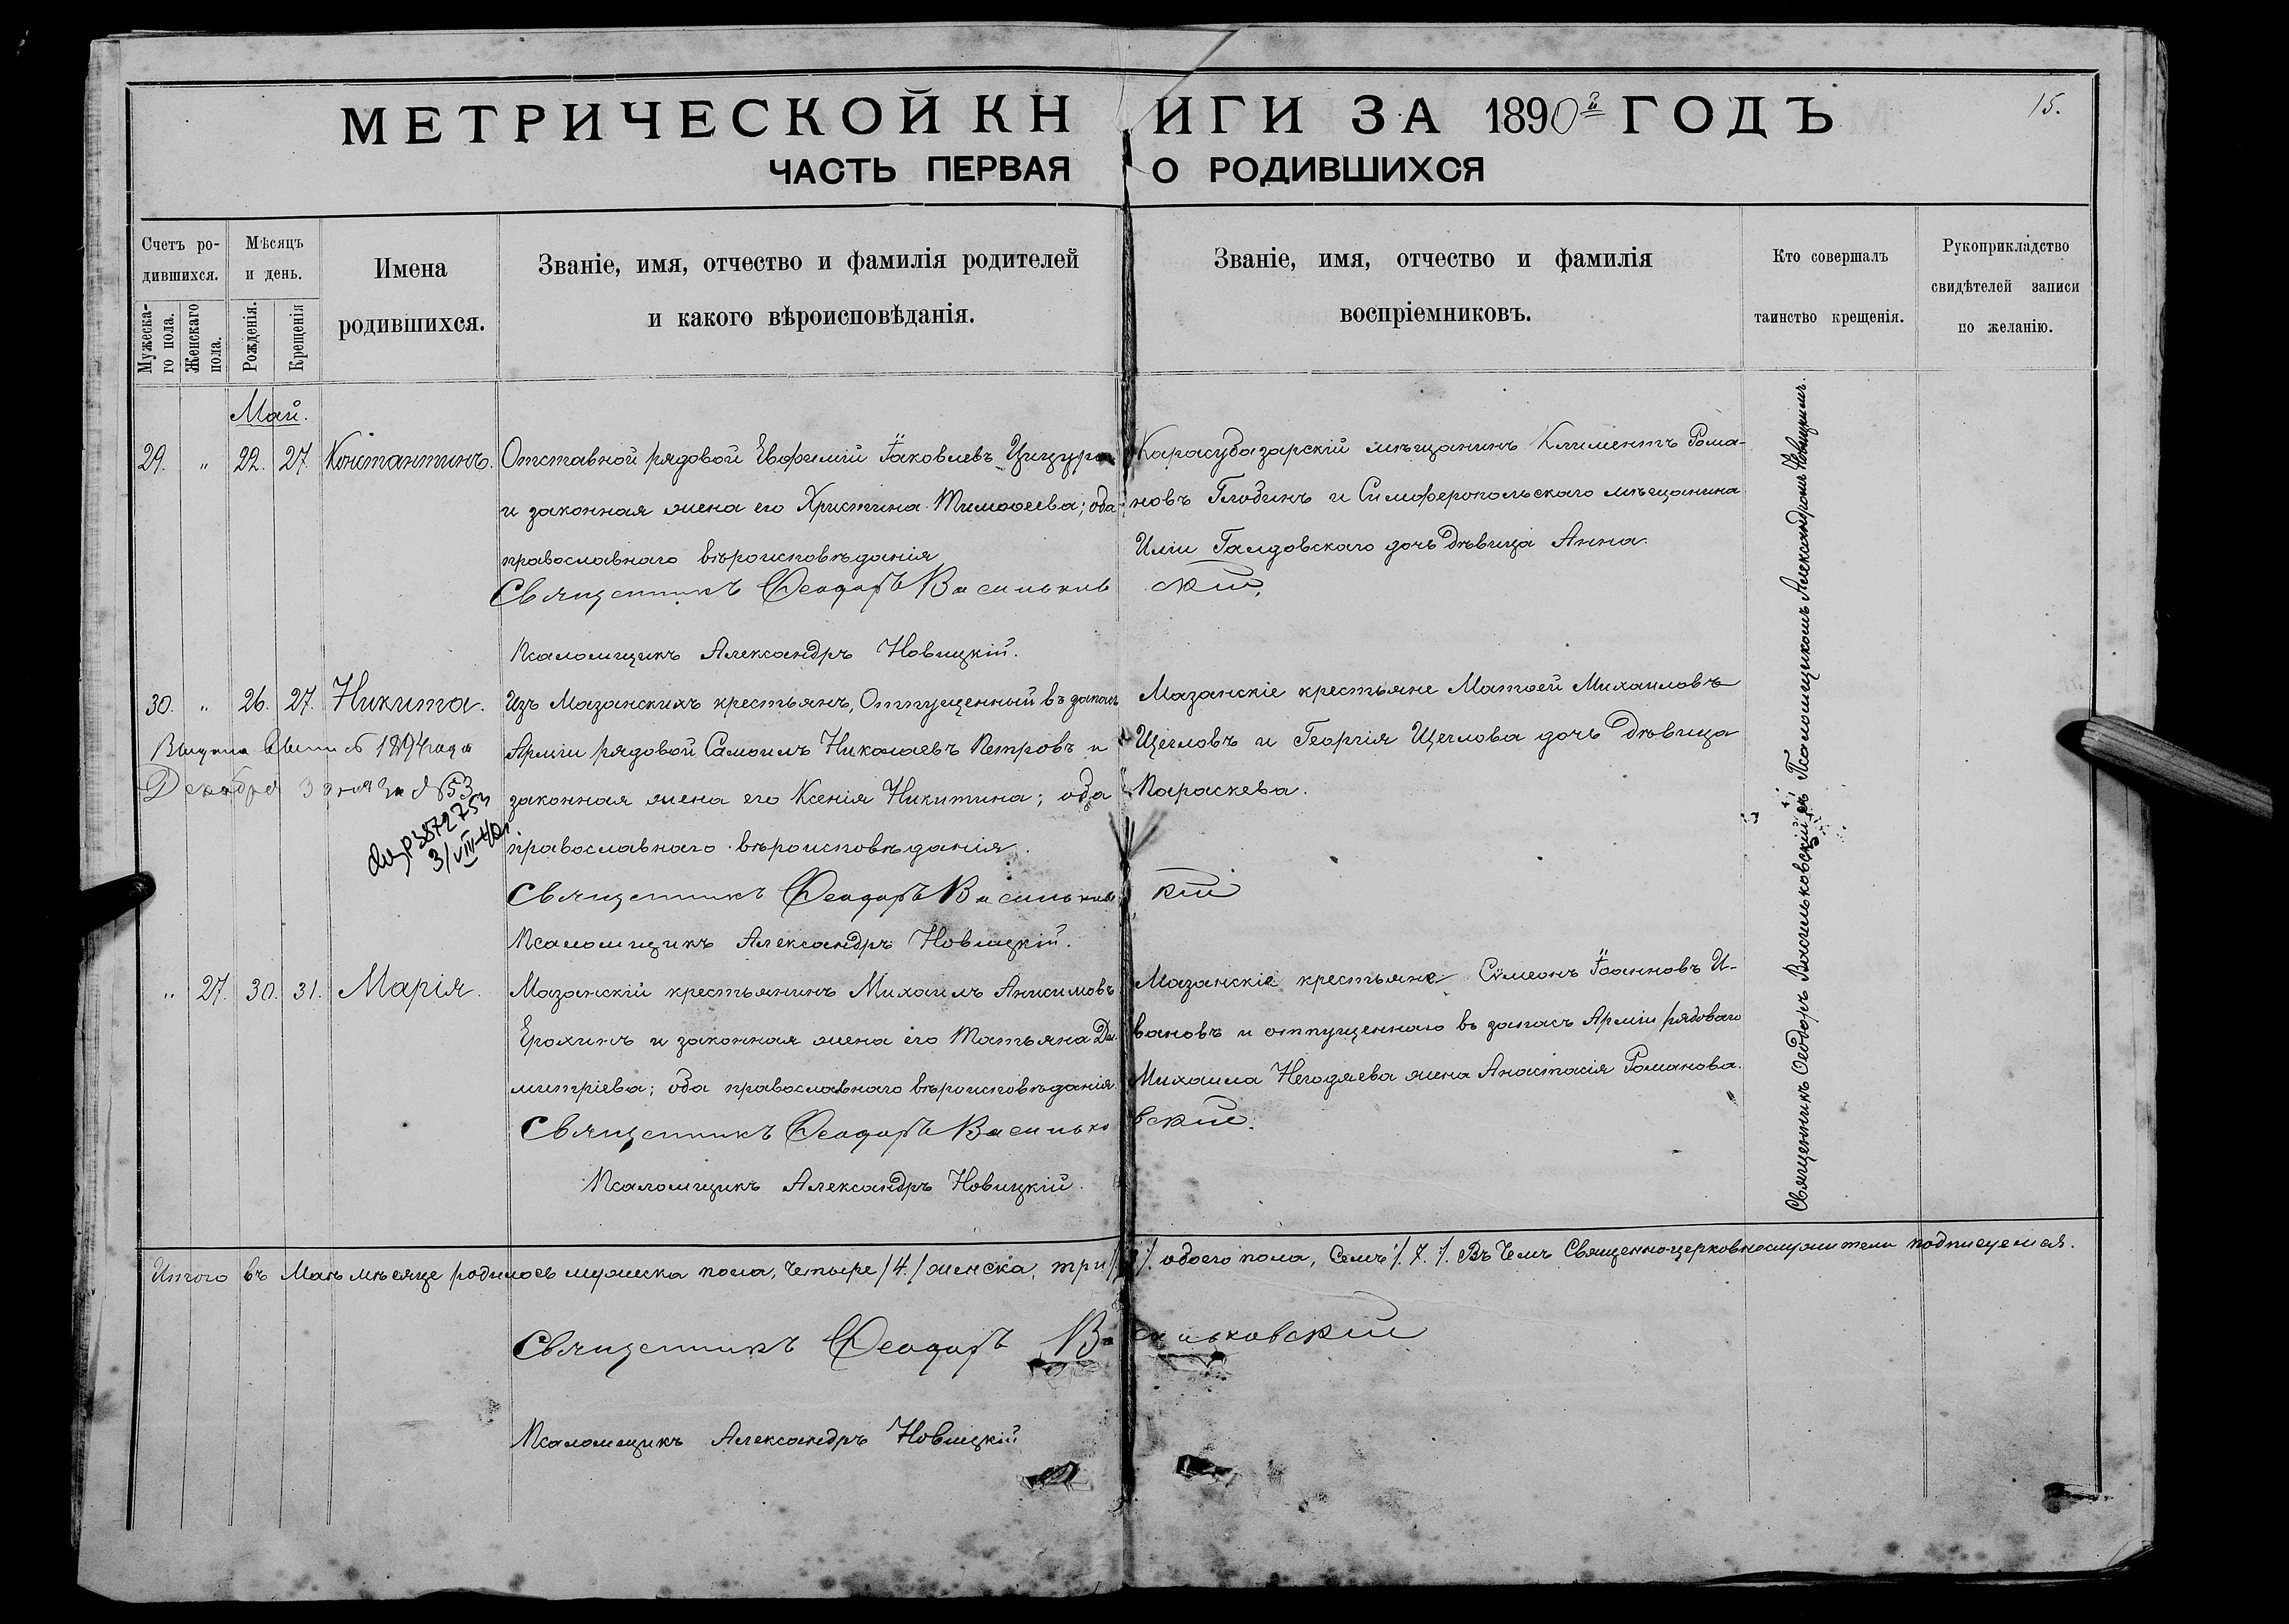 МЕТРИЧЕСКОЙ КНИГИ ЗА 1890й ГОДЪ
15.
ЧАСТЬ ПЕРВАЯ О РОДИВШИХСЯ
Счетъ ро-
дившихся.
Мужеска-
го пола.
Женскаго
пола.
Мѣсяцъ
и день.
Рожденія.
Крещенія
Имена
родившихся.
Званіе, имя, отчество и фамилія родителей
и какого вѣроисповѣданія.
Званіе, имя, отчество и фамилія
воспріемниковъ.
Кто совершалъ
таинство крещенія.
Рукоприкладство
свидѣтелей записи
по желанію.
Май.
29. " 22. 27. Константинъ.
Отставной рядовой Евфимій Іаковлевъ Цицура
и законная жена его Христина Тимоѳеева; оба
православнаго вѣроисповѣданія
Карасубазарскій мѣщанинъ Климентъ Рома-
новъ Глобинъ и Симферопольскаго мѣщанина
Иліи Галдовскаго дочь дѣвица Анна.
Священникъ Ѳеодоръ Васильковскій.
Псаломщикъ Александръ Новицкій.
30. " 26. 27. Никита.
Изъ Мазанскихъ крестьянъ, Отпущенный въ запасъ
Арміи рядовой Самоилъ Николаевъ Петровъ и
законная жена его Ксенія Никитина; оба
православнаго вѣроисповѣданія.
Мазанскіе крестьяне Матѳей Михаиловъ
Щегловъ и Георгія Щеглова дочь дѣвица
Параскева.
1894 года
Декабря 3 дня за № 53
3/VIII-40г.
Священникъ Ѳеодоръ Васильковскій
Псаломщикъ Александръ Новицкій.
" 27. 30. 31. Марія.
Мазанскій крестьянинъ Михаилъ Анисимовъ
Ерохинъ и законная жена его Татьяна Ди-
митріева; оба православнаго вѣроисповѣданія.
Мазанскіе крестьяне Сѵмеонъ Іоанновъ И-
вановъ и отпущеннаго въ запасъ Арміи рядоваго
Михаила Негодяева жена Анастасія Романова.
Священникъ Ѳеодоръ Васильковскій.
Псаломщикъ Александръ Новицкій.
Священникъ Ѳеодоръ Васильковскій съ Псаломщикомъ Александромъ Новицкимъ.
Итого въ Маѣ мѣсяцѣ родилось мужеска пола, четыре /4./ женска, три /3/. обоего пола, Семь /.7./. Въ Чемъ Священноцерковнослужители подписуемся.
Священникъ Ѳеодоръ Васильковскій
Псаломщикъ Александръ Новицкій